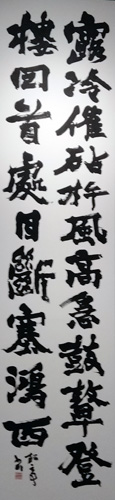 露冷催砧杵風高急鼓鼙登
樓回首處日斷塞鴻西